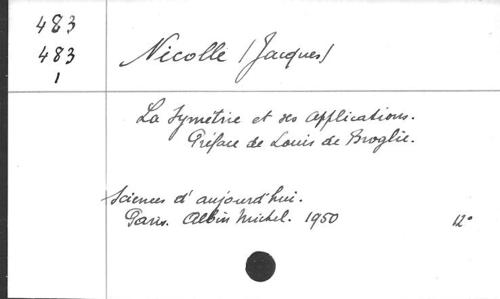 483
483
1
Nicolle (Jacques)
La Symétrie et ses applications.
Préface de Louis de Broglie.
Sciences d'aujourd'hui.
Paris. Albin Michel. 1950 12°